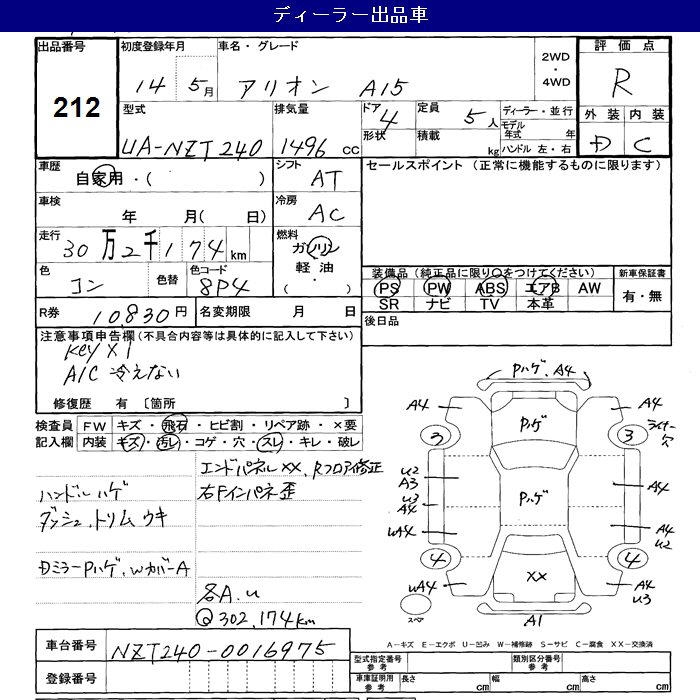 ディーラー出品車
出品番号
212
初度登録年月
14 5月
車名・グレード
アリオン A15
2WD
・
4WD
評価点
R
外装 内装
D C
型式
UA-NZT240
排気量
1496 cc
ドア
4
形状
定員
5人
積載
kg
ディーラー・並行
モデル年式 年
ハンドル 左・右
車歴
自家用・( )
シフト
AT
セールスポイント (正常に機能するものに限ります)
車検
年 月( 日)
冷房
AC
走行
30万2千174km
燃料
ガソリン
軽油
( ・ )
色
コン
色替
色コード
8P4
装備品(純正品に限り○をつけてください)
PS PW ABS エアB AW
SR ナビ TV 本革
新車保証書
有・無
R券
10,830円
名変期限 月 日
後日品
注意事項申告欄(不具合内容等は具体的に記入して下さい)
Key X1
A/C 冷えない
修復歴 有 〔箇所 〕
検査員記入欄
FW キズ・飛石・ヒビ割・リペア跡・×要
内装 キズ・汚レ・コゲ・穴・スレ・キレ・破レ
エンドパネルXX、Rフロア修正
ハンドルハゲ
右Fインパネ歪
ダッシュ、トリムウキ
DミラーPハゲ、WカバーA
各A.U
Q302,174km
Pハゲ、A4
A4
A4
Pハゲ
3
3
ライナー穴
U2
A3
U3
A4
Pハゲ
A4
WA4
A4
U2
4
4
WA4
XX
A4
U3
スペア
A1
A-キズ E-エクボ U-凹み W-補修跡 S-サビ C-腐食 XX-交換済
車台番号
NZT240-0016975
登録番号
型式指定番号
参考
類別区分番号
参考
車庫証明用
参考
長さ cm
幅 cm
高さ cm